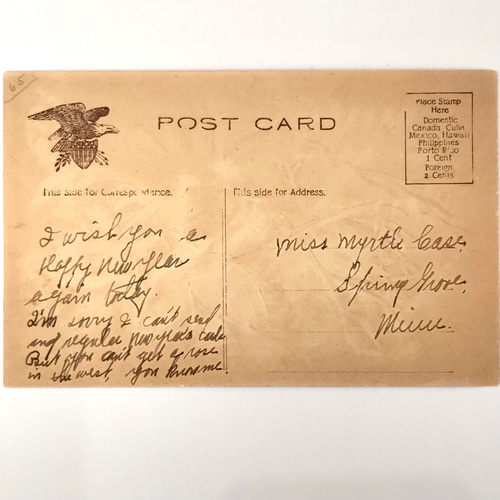 65
POST CARD
Place Stamp
Here
Domestic
Canada Cuba
Mexico, Hawaii
Philippines
Porto Rico
1 Cent
Foreign
2 Cents
This side for Correspondence.
This side for Address.
I wish you a
Happy New Year
again today.
I'm sorry I can't send
any regular New Year's cards
But you can't get a rose
in the west, you know me.
Miss Myrtle Case
Spring Grove,
Minn.